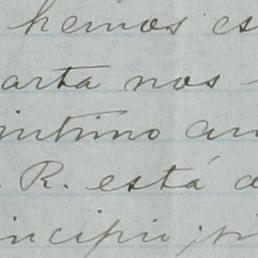 hemos es
arta nos
intimo an
. R. está d
incipio; si